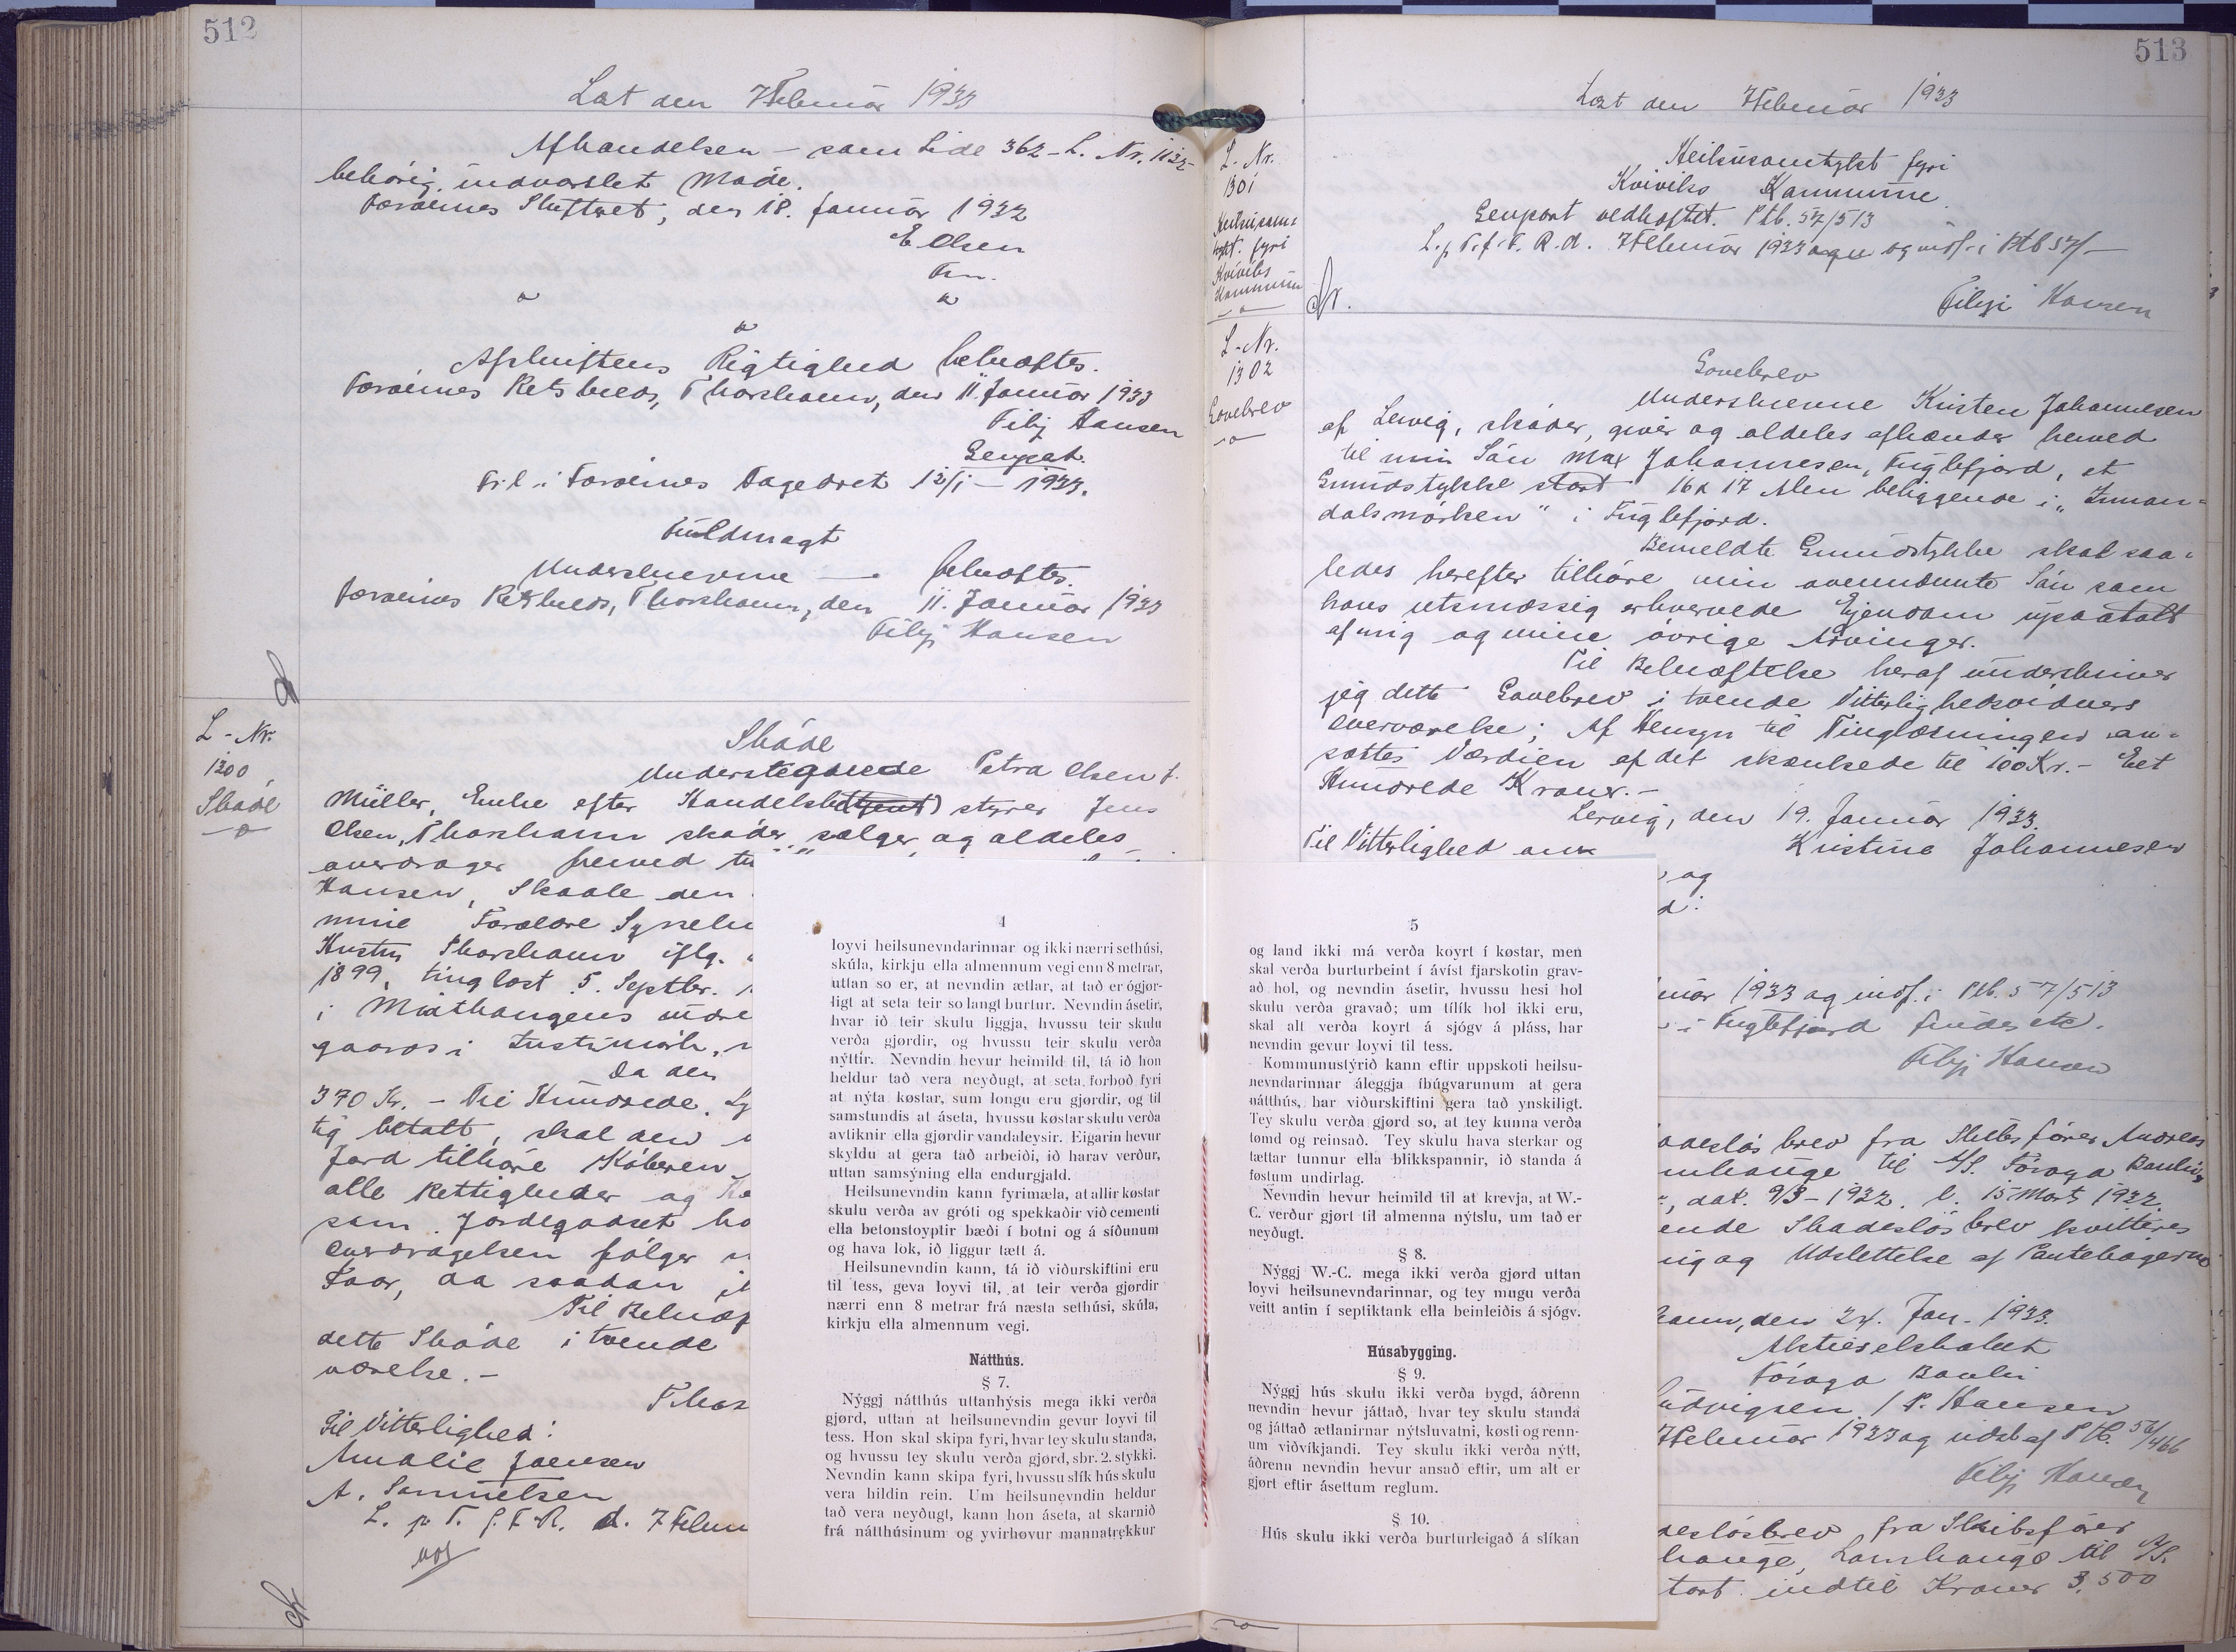 512
Læst den 7 Februar 1933
Afhandelsen - som Side 362 - L. Nr. 1123-
behørig indvarslet Møde.
Færøernes Skifteret, den 18. Januar 1932
E Olsen
Fm.
Afskriftens Rigtighed bekræftes.
Færøernes Retskreds, Thorshavn, den 11. Januar 1933
Filip Hansen
Genpat.
Fr. l. i Færøernes Fogedret 12/1 - 1933.
Fuldmagt
Underskrevne — bekræftes.
Færøernes Retskreds, Thorshavn, den 11. Januar 1933
Filip Hansen
L - Nr.
1300
Skøde
Skøde
Undertegnede Petra Olsen f.
Müller, Enke efter Handelsbestyrer Jens
Olsen, Thorshavn skøder, sælger og aldeles
overdrager herved
Hansen, Skaale den
mine Forældre
Hustru Thorshavn iflg.
1899, tinglæst 5. Septbr.
i
gaards i
Da den
370 Kr. - Tre Hundrede
tig betalt, skal den
Jord tilhøre Køberen
alle Rettigheder og
som Jordegodset
Overdragelsen følger
Faar, da saadan
Til Bekræf
dette Skøde i tvende
værelse. -
Thors
Til Vitterlighed:
Amalie Joensen
A. Samuelsen
L. p. T. f. F. R. d. 7 Febru
4
loyvi heilsunevndarinnar og ikki nærri sethúsi,
skúla, kirkju ella almennum vegi enn 8 metrar,
uttan so er, at nevndin ætlar, at tað er ógjør-
ligt at seta teir so langt burtur. Nevndin ásetir,
hvar ið teir skulu liggja, hvussu teir skulu
verða gjørdir, og hvussu teir skulu verða
nýttir. Nevndin hevur heimild til, tá ið hon
heldur tað vera neyðugt, at seta forboð fyri
at nýta køstar, sum longu eru gjørdir, og til
samstundis at áseta, hvussu køstar skulu verða
avtiknir ella gjørdir vandaleysir. Eigarin hevur
skyldu at gera tað arbeiði, ið harav verður,
uttan samsýning ella endurgjald.
Heilsunevndin kann fyrimæla, at allir køstar
skulu verða av gróti og spekkaðir við cementi
ella betonstoyptir bæði í botni og á síðunum
og hava lok, ið liggur tætt á.
Heilsunevndin kann, tá ið viðurskiftini eru
til tess, geva loyvi til, at teir verða gjørdir
nærri enn 8 metrar frá næsta sethúsi, skúla,
kirkju ella almennum vegi.
Nátthús.
§ 7.
Nýggj nátthús uttanhýsis mega ikki verða
gjørd, uttan at heilsunevndin gevur loyvi til
tess. Hon skal skipa fyri, hvar tey skulu standa,
og hvussu tey skulu verða gjørd, sbr. 2. stykki.
Nevndin kann skipa fyri, hvussu slík hús skulu
vera hildin rein. Um heilsunevndin heldur
tað vera neyðugt, kann hon áseta, at skarnið
frá nátthúsinum og yvirhøvur mannatrekkur
513
Læst den 7 Februar 1933
L. Nr.
1301
Heilsusam-
tykt fyri
Kvívíks
Kommunu
Heilsusamtykt fyri
Kvívíks Kommunu.
Genpart vedhæftet. Ptb. 57/513
L. p. T. f. F. R. d. 7 Februar 1933 og indf. i Ptb 57/-
Filip Hansen
L. Nr.
1302
Gavebrev
Gavebrev
Underskrevne Kristen Johannesen
af Lervig, skøder, giver og aldeles afhænder herved
til min Søn Max Johannesen, Fuglefjord, et
Grundstykke stort 16 x 17 Alen beliggende i „Innan-
dalsmørken" i Fuglefjord.
Bemeldte Grundstykke skal saa-
ledes herefter tilhøre min ovennævnte Søn som
hans retsmæssig erhvervede Ejendom upaatalt
af mig og mine øvrige Arvinger.
Til Bekræftelse heraf underskriver
jeg dette Gavebrev i tvende Vitterlighedsvidners
Overværelse; Af Hensyn til Tinglæsningen an-
sættes Værdien af det skænkede til 100 Kr. - Eet
Hundrede Kroner. -
Lervig, den 19. Januar 1933.
Til Vitterlighed
Kristine Johannesen
og
5
og land ikki má verða koyrt í køstar, men
skal verða burturbeint í ávíst fjarskotin grav-
að hol, og nevndin ásetir, hvussu hesi hol
skulu verða gravað; um tílík hol ikki eru,
skal alt verða koyrt á sjógv á pláss, har
nevndin gevur loyvi til tess.
Kommunustýrið kann eftir uppskoti heilsu-
nevndarinnar áleggja íbúgvarunum at gera
nátthús, har viðurskiftini gera tað ynskiligt.
Tey skulu verða gjørd so, at tey kunna verða
tømd og reinsað. Tey skulu hava sterkar og
tættar tunnur ella blikkspannir, ið standa á
føstum undirlag.
Nevndin hevur heimild til at krevja, at W.-
C. verður gjørt til almenna nýtslu, um tað er
neyðugt.
§ 8.
Nýggj W.-C. mega ikki verða gjørd uttan
loyvi heilsunevndarinnar, og tey mugu verða
veitt antin í septiktank ella beinleiðis á sjógv.
Húsabygging.
§ 9.
Nýggj hús skulu ikki verða bygd, áðrenn
nevndin hevur játtað, hvar tey skulu standa
og játtað ætlanirnar nýtsluvatni, kosti og renn-
um viðvíkjandi. Tey skulu ikki verða nýtt,
áðrenn nevndin hevur ansað eftir, um alt er
gjørt eftir ásettum reglum.
§ 10.
Hús skulu ikki verða burturleigað á slíkan
uar 1933 og indf. i Ptb. 57/513
i Fuglefjord findes etc.
Filip Hansen
adesløsbrev fra Skibsfører Andreas
mhauge til A/S. Føroya Banki,
dat. 9/3 - 1932. l. 15 Marts 1932.
ende Skadesløsbrev kvitteres
ig og Udslettelse af Pantebøgerne
havn, den 24. Jan. 1933.
Aktieselskabet
Føroya Banki
Ludvigsen / P. Hansen
7 Februar 1933 og udsl. af Ptb. 56/466
Filip Hansen
desløsbrev fra Skibsfører
hauge, Lamhauge til A/S.
stort indtil Kroner 3.500